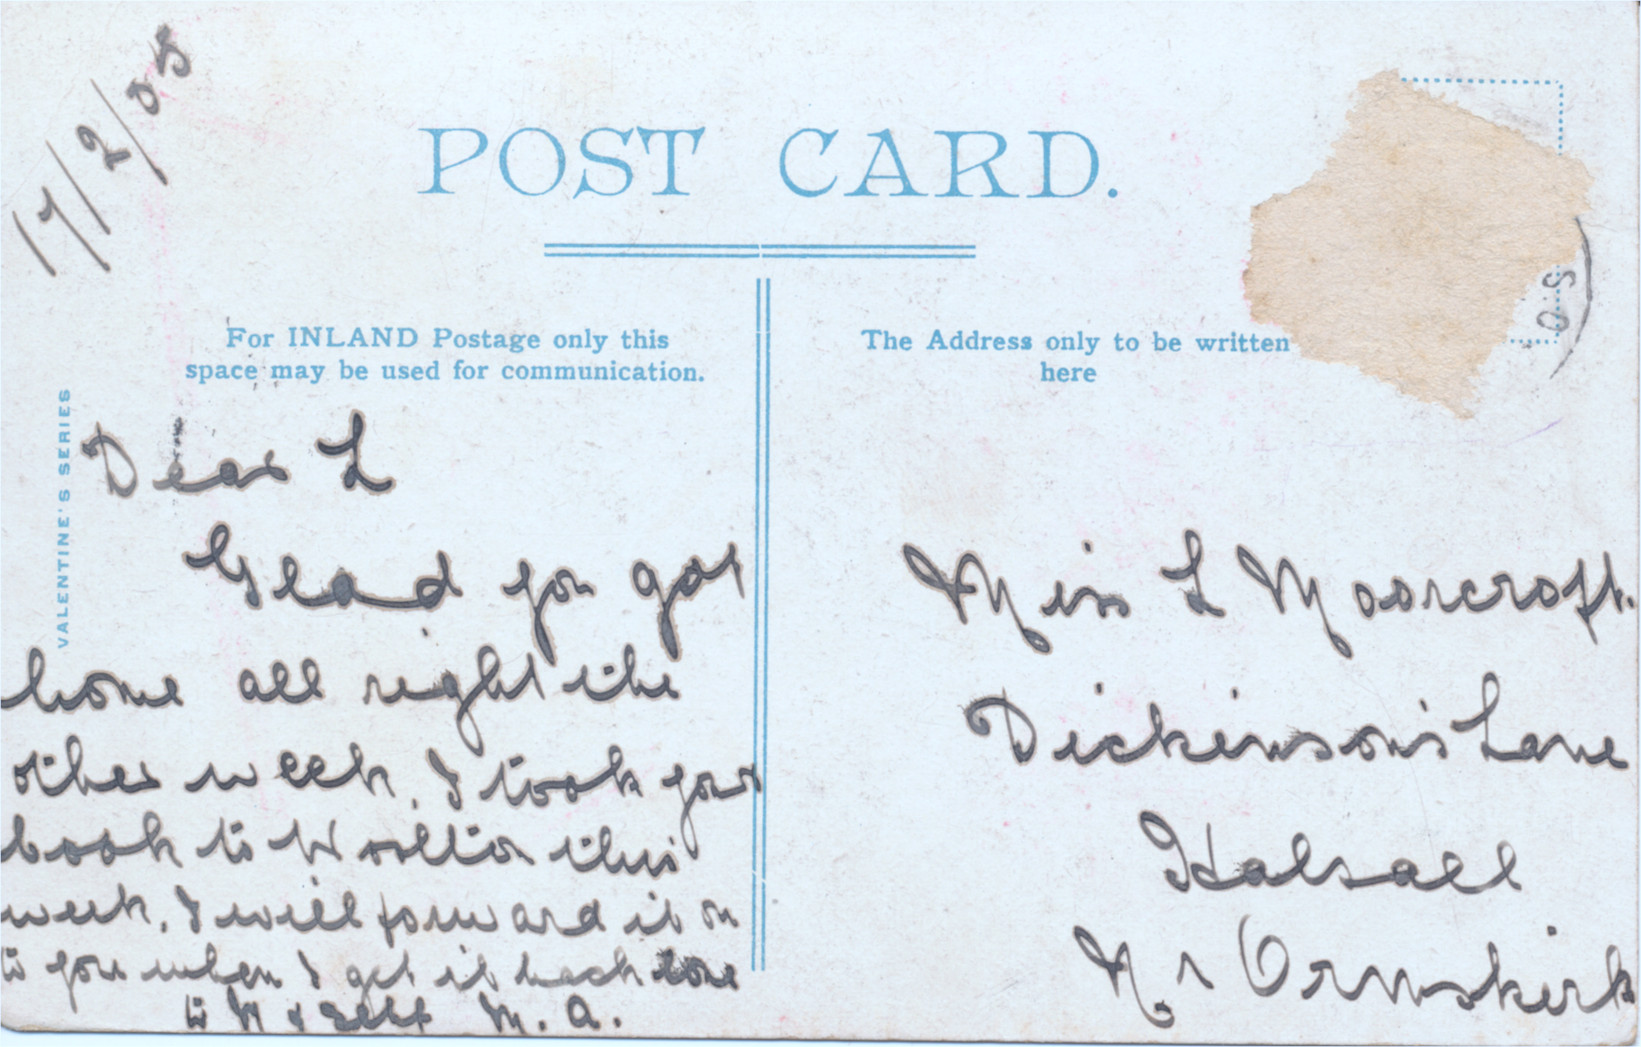 17/2/05
POST CARD.
For INLAND Postage only this
space may be used for communication.
The Address only to be written
here
VALENTINE'S SERIES
Dear L
Glad you got
home all right the
other week, I took your
book to Woolton this
week. I will forward it on
to you when I get it back love
to M & self M. A.
Miss L Moorcroft.
Dickinson's Lane
Halsall
Nr Ormskirk